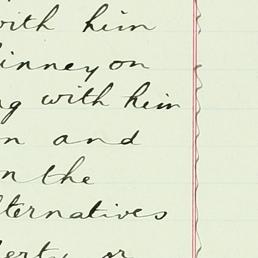 with him
inney on
ng with him
n and
n the
lternatives
herty or